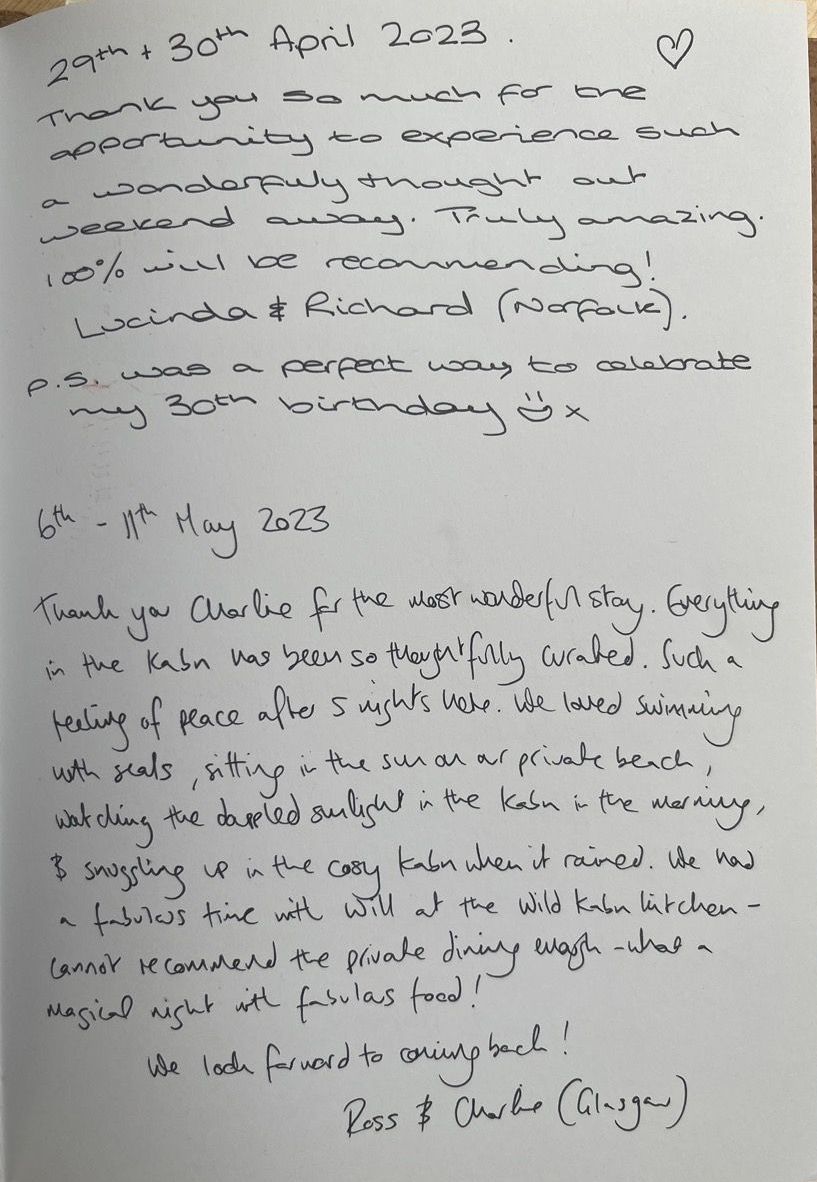 29th + 30th April 2023. ♡
Thank you so much for the
opportunity to experience such
a wonderfuly thought out
weekend away. Truly amazing.
100% will be recommending!
Lucinda & Richard (Norfolk).
p.s. was a perfect way to celebrate
my 30th birthday ☺ x
6th - 11th May 2023
Thank you Charlie for the most wonderful stay. Everything
in the Kabn has been so thoughtfully curated. Such a
feeling of peace after 5 nights here. We loved swimming
with seals, sitting in the sun on our private beach,
watching the dappled sunlight in the Kabn in the morning,
& snuggling up in the cosy Kabn when it rained. We had
a fabulous time with Will at the Wild Kabn Kitchen -
cannot recommend the private dining enough - what a
magical night with fabulous food!
We look forward to coming back!
Ross & Charlie (Glasgow)